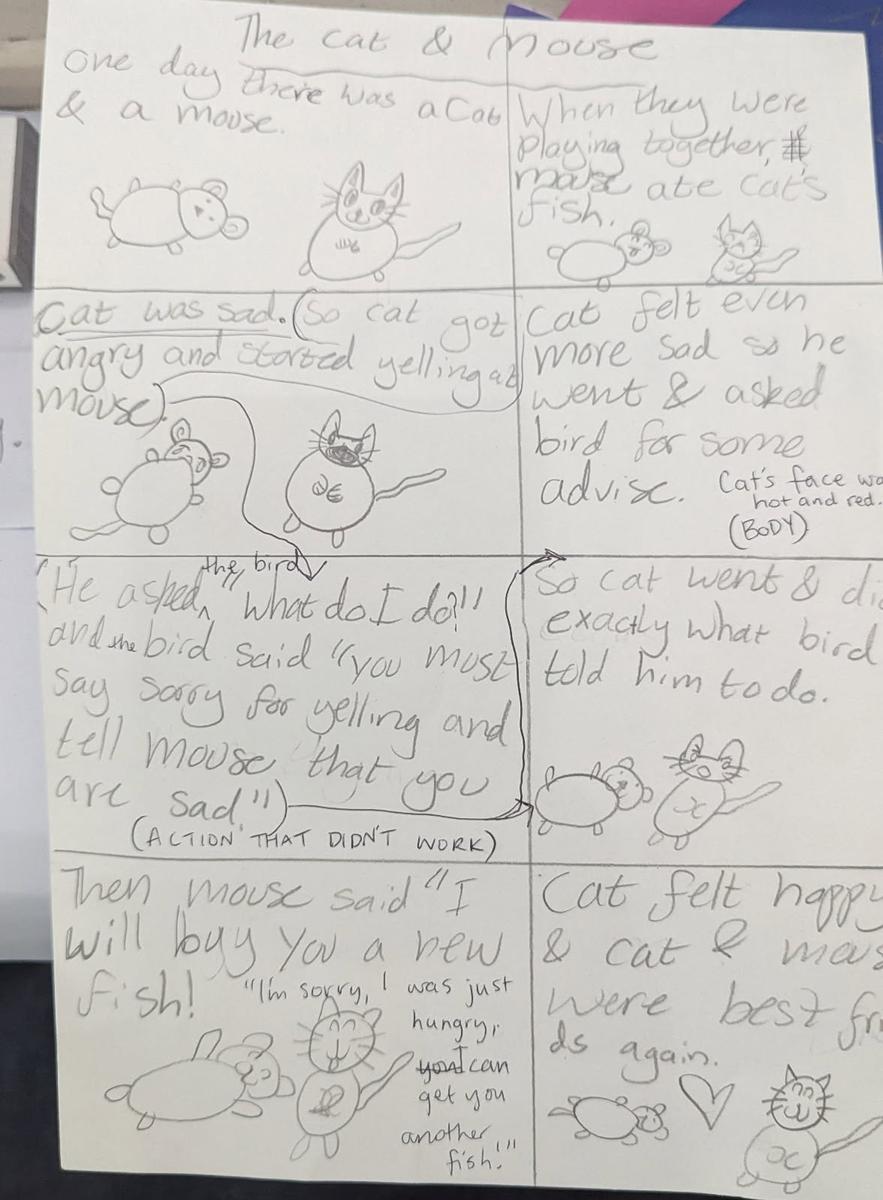 The cat & mouse
One day there was a Cat
& a mouse.
When they were
playing together,
mouse ate cat's
fish.
Cat was sad. (So cat got
angry and started yelling at
mouse).
Cat felt even
more sad so he
went & asked
bird for some
advise.
Cat's face wa
hot and red.
(BODY)
(He asked, the bird "what do I do?"
and the bird said "you must
say sorry for yelling and
tell mouse that you
are sad")
(ACTION THAT DIDN'T WORK)
So cat went & di
exactly what bird
told him to do.
Then mouse said "I
will buy you a new
fish!
"I'm sorry, I was just
hungry,
I can
get you
another
fish!"
Cat felt happy
& cat & mous
were best fri
ds again.